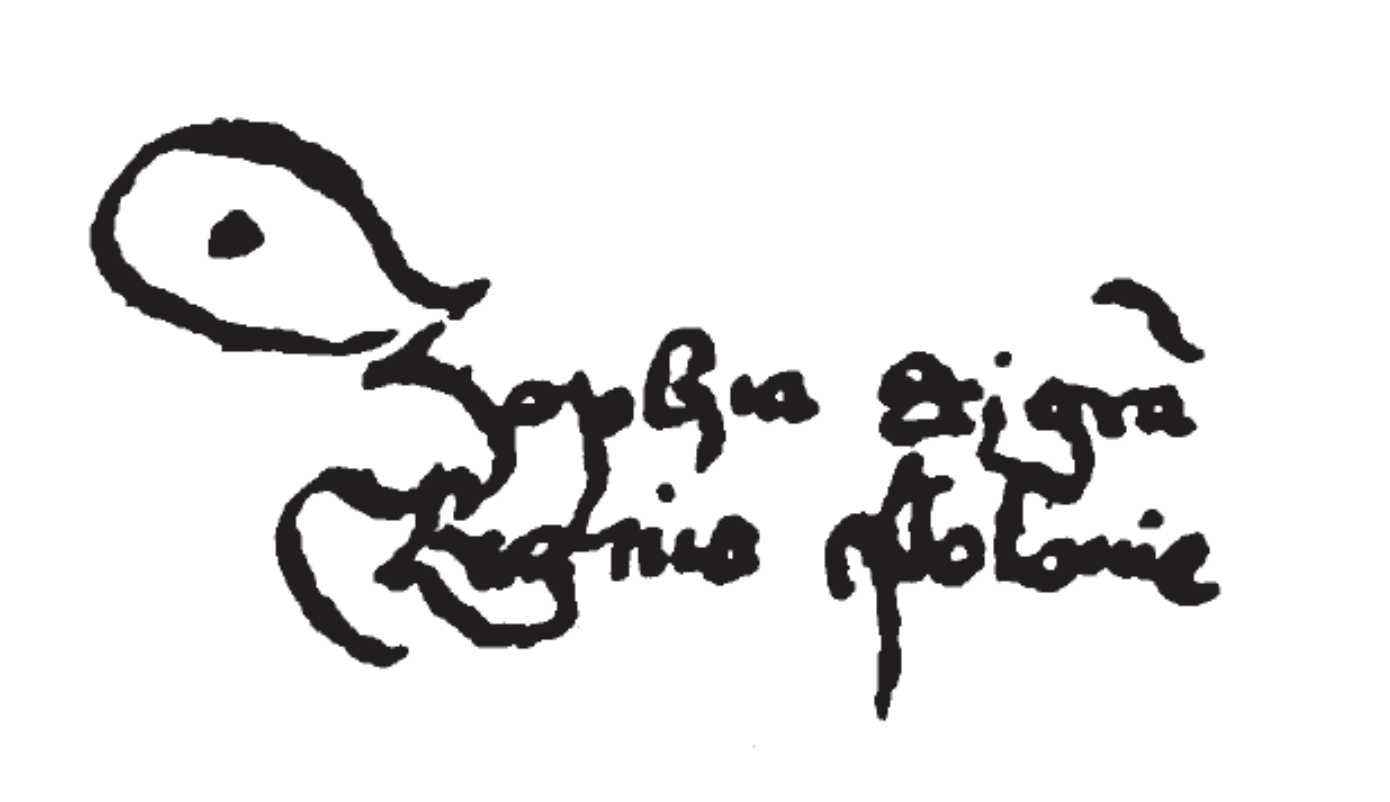 Sophia dei gra
Regina Polonie